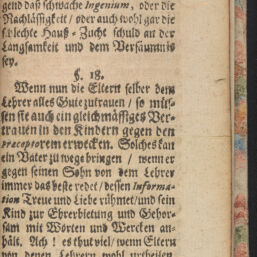 gend daß schwache Ingenium, oder die
Nachlässigkeit / oder auch wohl gar die
schlechte Hauß-Zucht schuld an der
Langsamkeit und dem Versäumnis
sey.
§. 18.
Wenn nun die Eltern selber dem
Lehrer alles Gute zutrauen / so müs-
sen sie auch ein gleichmässiges Ver-
trauen in den Kindern gegen den
Præceptorem erwecken. Solches kan
ein Vater zu wege bringen / wenn er
gegen seinen Sohn von dem Lehrer
immer das beste redet / dessen Informa-
tion Treue und Liebe rühmet / und sein
Kind zur Ehrerbietung und Gehor-
sam mit Worten und Wercken an-
hält. Ach! es thut viel / wenn Eltern
von denen Lehrern wohl urtheilen